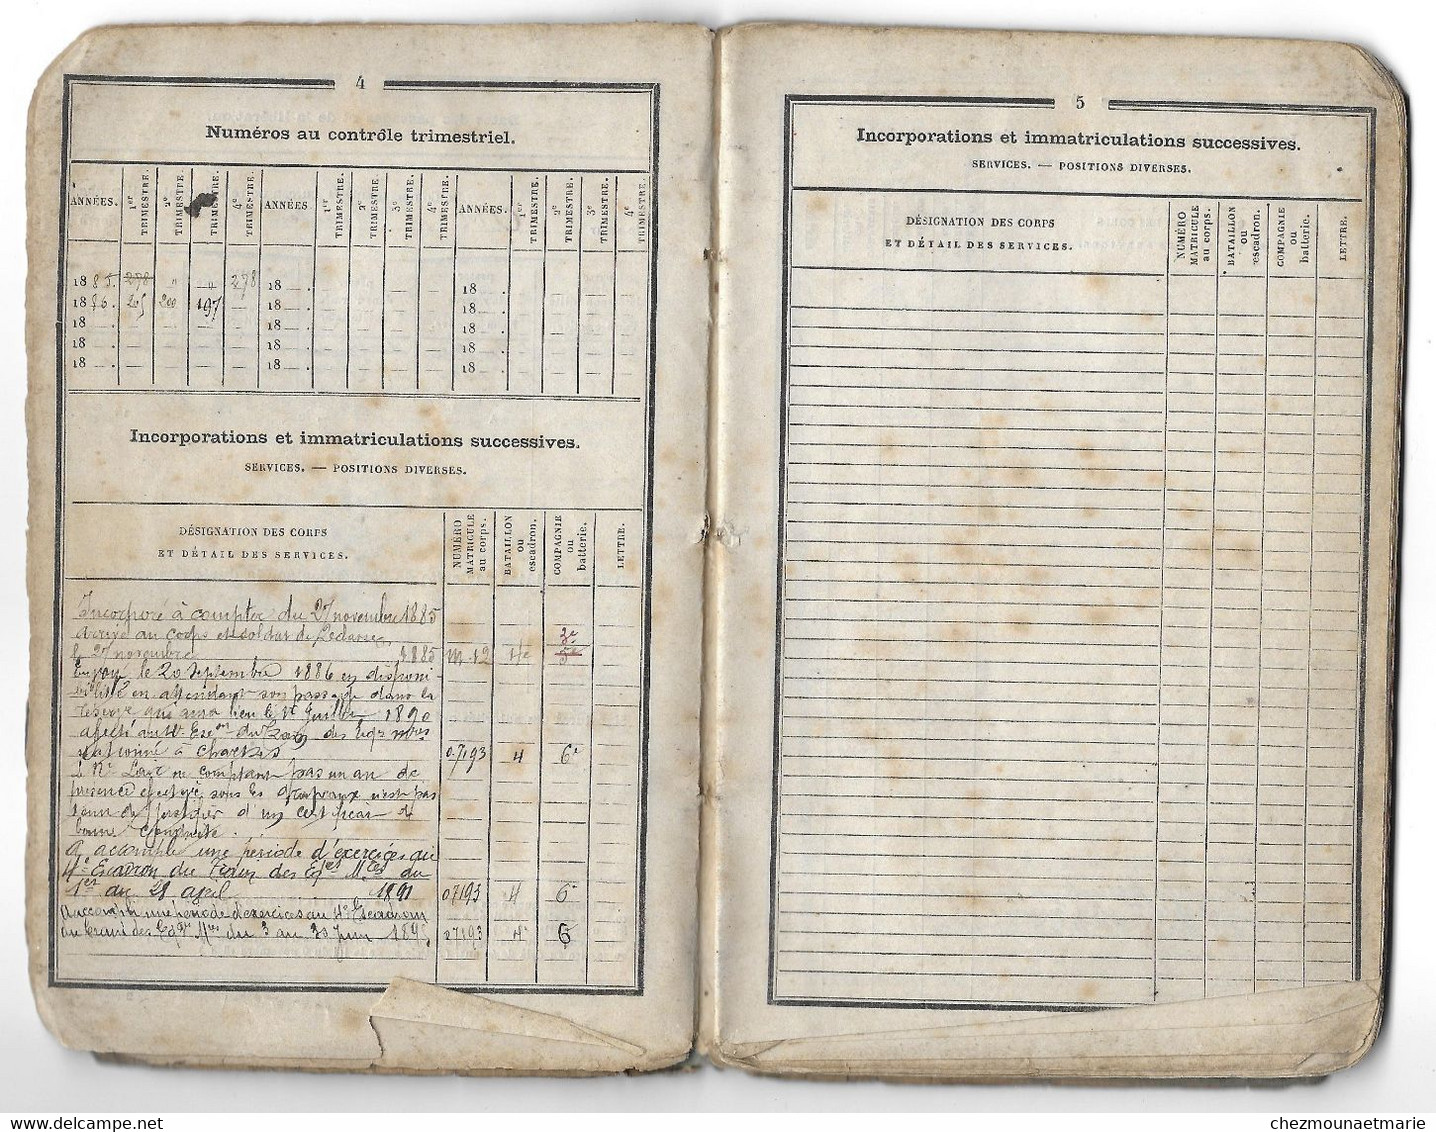 4
Numéros au contrôle trimestriel.
ANNÉES. 1er TRIMESTRE. 2e TRIMESTRE. TRIMESTRE. 4e TRIMESTRE. ANNÉES 1er TRIMESTRE. 2e TRIMESTRE. 3e TRIMESTRE. 4e TRIMESTRE. ANNÉES. 1er TRIMESTRE. 2e TRIMESTRE. 3e TRIMESTRE. 4e TRIMESTRE.
1885. 278 " " 278 18 — . 18 — .
1886. 205 200 197 — 18 — . 18 — .
18 — . 18 — . 18 — .
18 — . 18 — . 18 — .
18 — . 18 — . 18 — .
Incorporations et immatriculations successives.
SERVICES. — POSITIONS DIVERSES.
DÉSIGNATION DES CORPS
ET DÉTAIL DES SERVICES.
NUMÉRO MATRICULE au corps.
BATAILLON ou escadron.
COMPAGNIE ou batterie.
LETTRE.
Incorporé à compter du 27 novembre 1885
arrivé au corps et soldat de 2e classe 3e
le 27 novembre 1885 M 12 4e 5e
Envoyé le 20 septembre 1886 en disponi
bilité en attendant son passage dans la
réserve qui aura lieu le 1er Juillet 1890
affecté au 4e Esc on du Train des Eqs mres
stationné à Chartres 07193 4 6e
le Rre ne comptant pas un an de
présence effective sous les drapeaux n'est pas
tenu de justifier d'un certificat de
bonne conduite.
A accompli une période d'exercices au
4e Escadron du Train des Eqes Mres du
1er au 28 april 1891 07193 4 6e
A accompli une période d'exercices au 4e Escadron
du train des Eqes Mres du 3 au 30 Juin 1895 27193 4e 6
5
Incorporations et immatriculations successives.
SERVICES. — POSITIONS DIVERSES.
DÉSIGNATION DES CORPS
ET DÉTAIL DES SERVICES.
NUMÉRO MATRICULE au corps.
BATAILLON ou escadron.
COMPAGNIE ou batterie.
LETTRE.
chezmounaetmarie